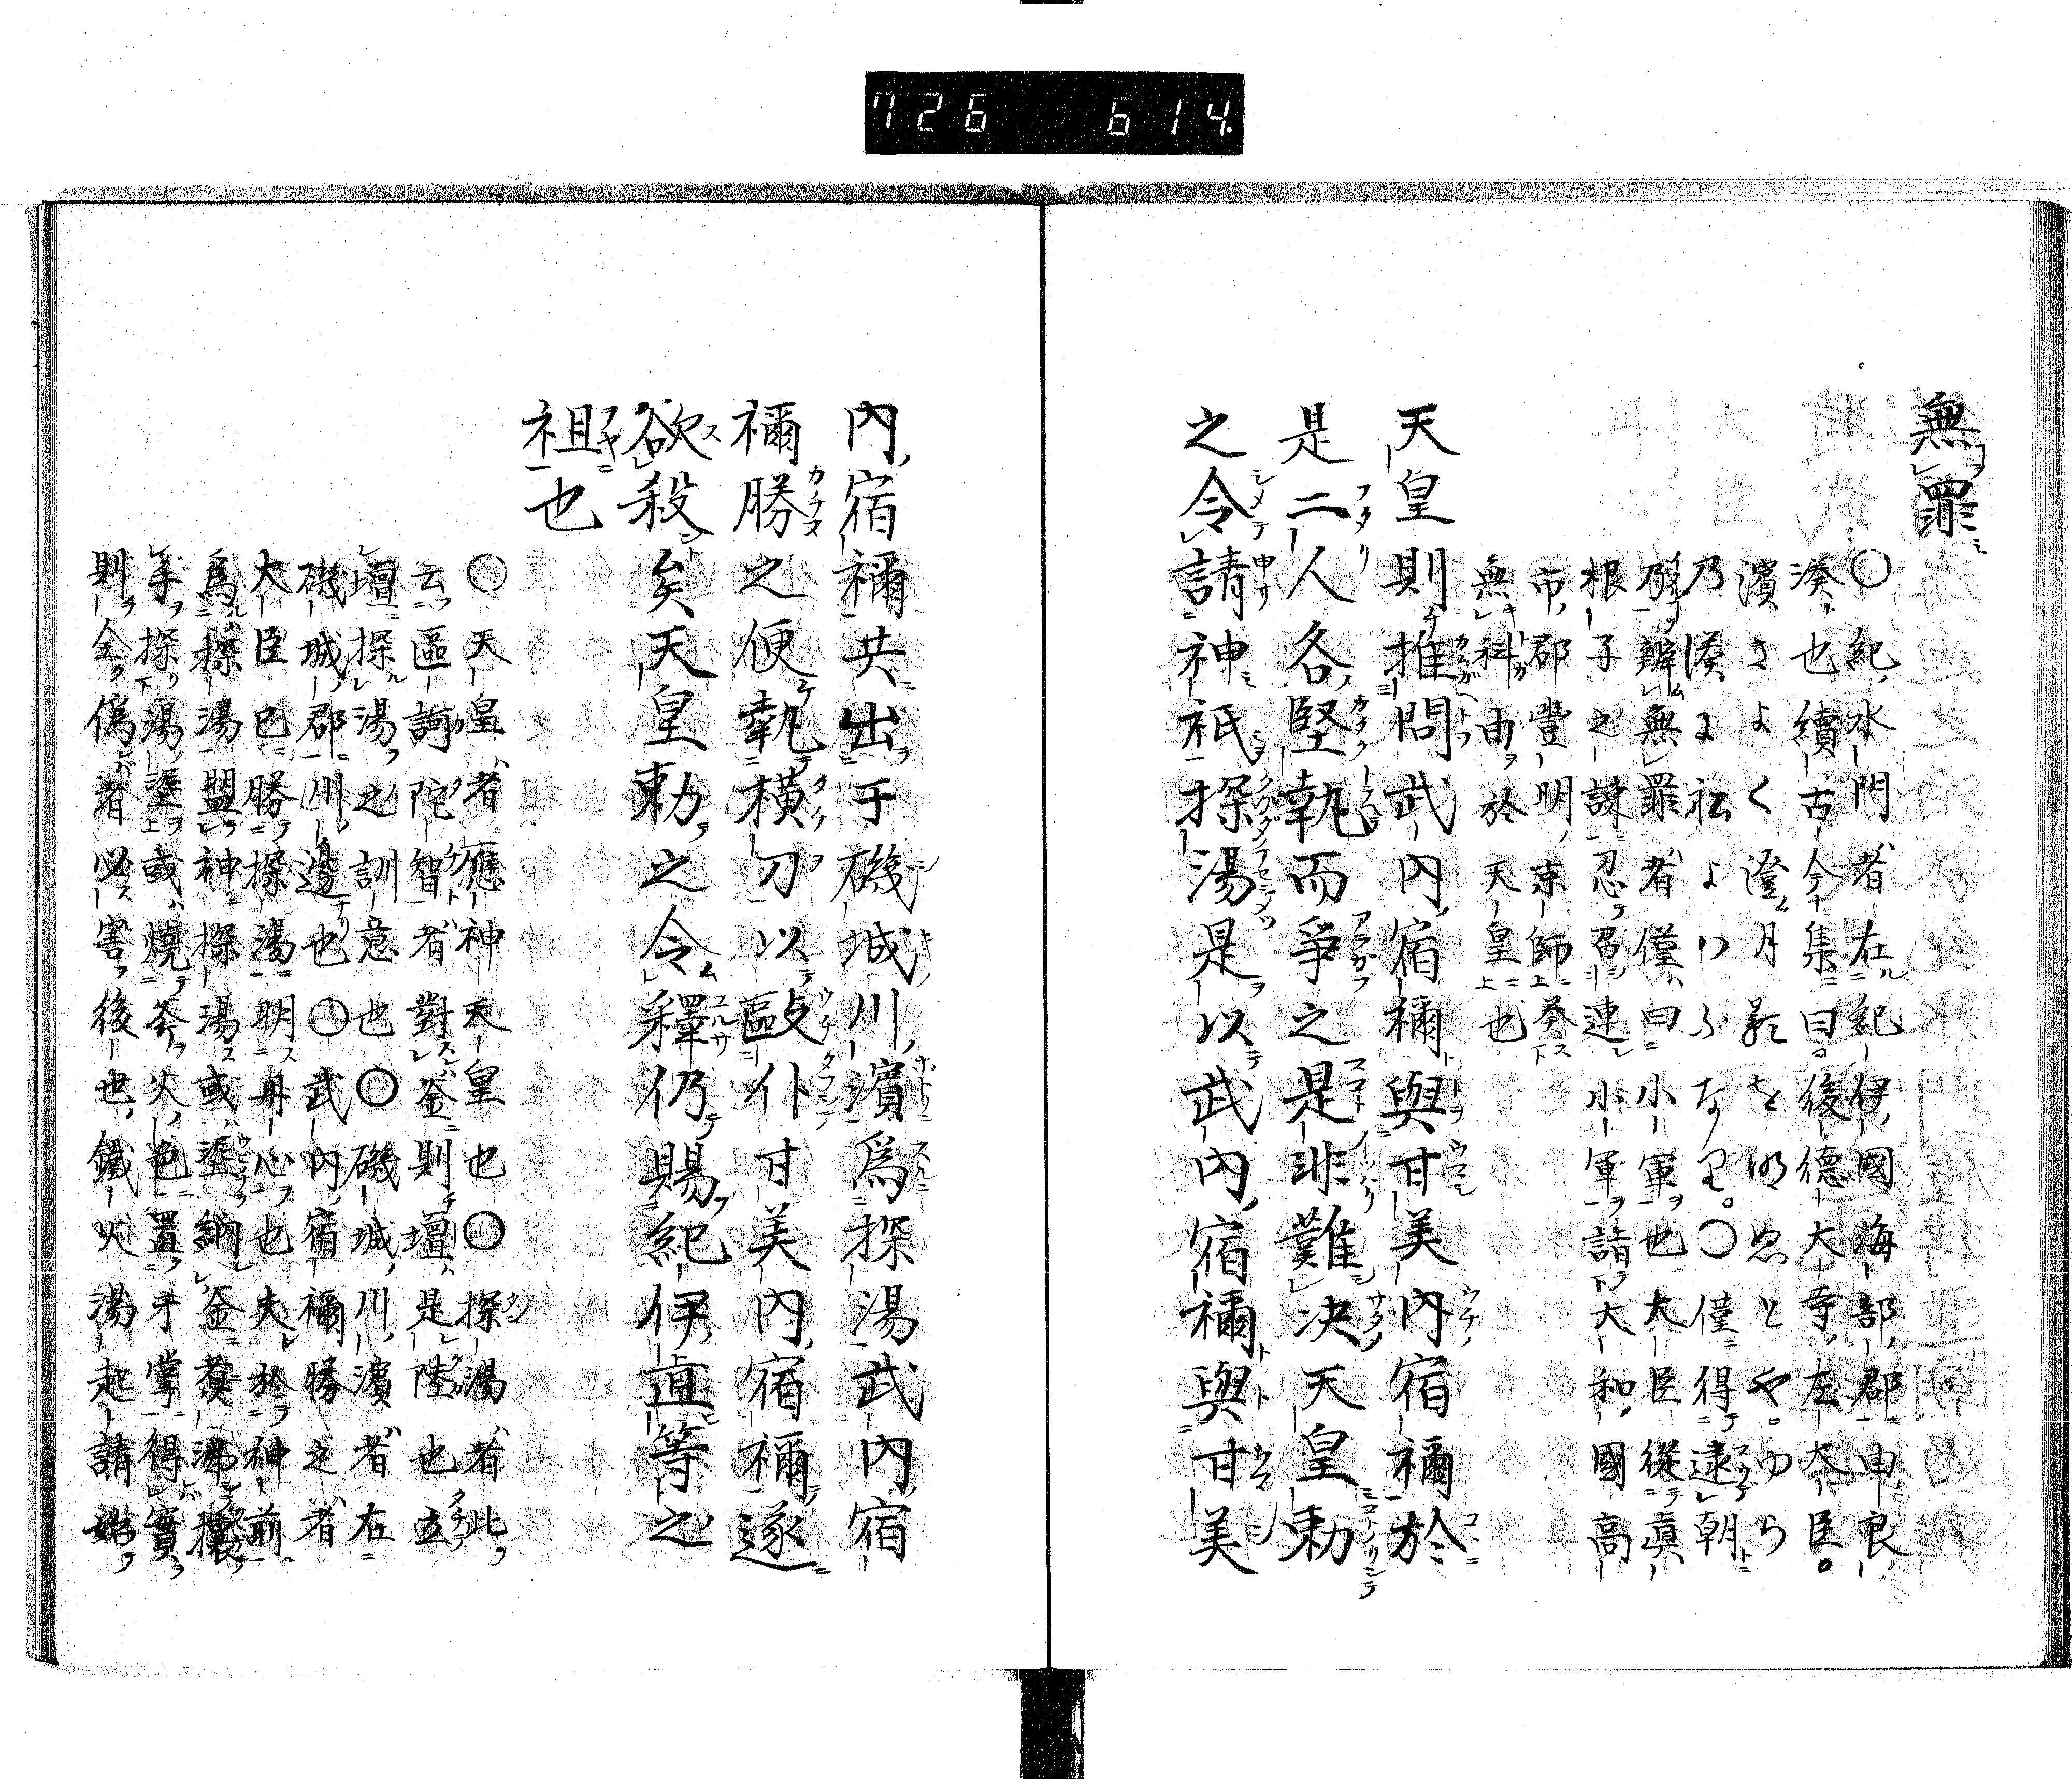 726 614
無罪
○紀水門者在紀伊國海部郡由良
湊也續古今集曰後德大寺左大臣
濱きよく澄月影を
乃湊に松
辧無罪者僅曰小軍也大臣從眞
根子之諫忍召連小軍詣大和國高
市郡豐明京師奏
無科由於天皇也
天皇則推問武內宿禰與甘美內宿禰於
是二人各堅執而爭之是非難決天皇勅
之令請神祇探湯是以武內宿禰與甘美
內宿禰共出于磯城川濱爲探湯武內宿
禰勝之便執橫刀以毆仆甘美內宿禰遂
欲殺矣天皇勅之令釋仍賜紀伊直等之
祖也
○天皇者應神天皇也○探湯者此
云區訶陀智者對釜則壇是陸也立
壇探湯之訓意也○磯城川濱者在
磯城郡川邊也○武內宿禰勝之者
大臣已勝探湯明丹心也夫於神前
爲探湯盟神探湯或塗納釜煮沸攘
手探湯塗或燒斧火色置于掌得實
則全僞者必害後也鐵火湯起請始